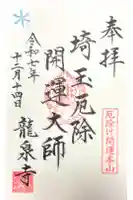 奉拝
厄除け開運本山
埼玉厄除
開運大師
龍泉寺
令和七年
十二月十四日